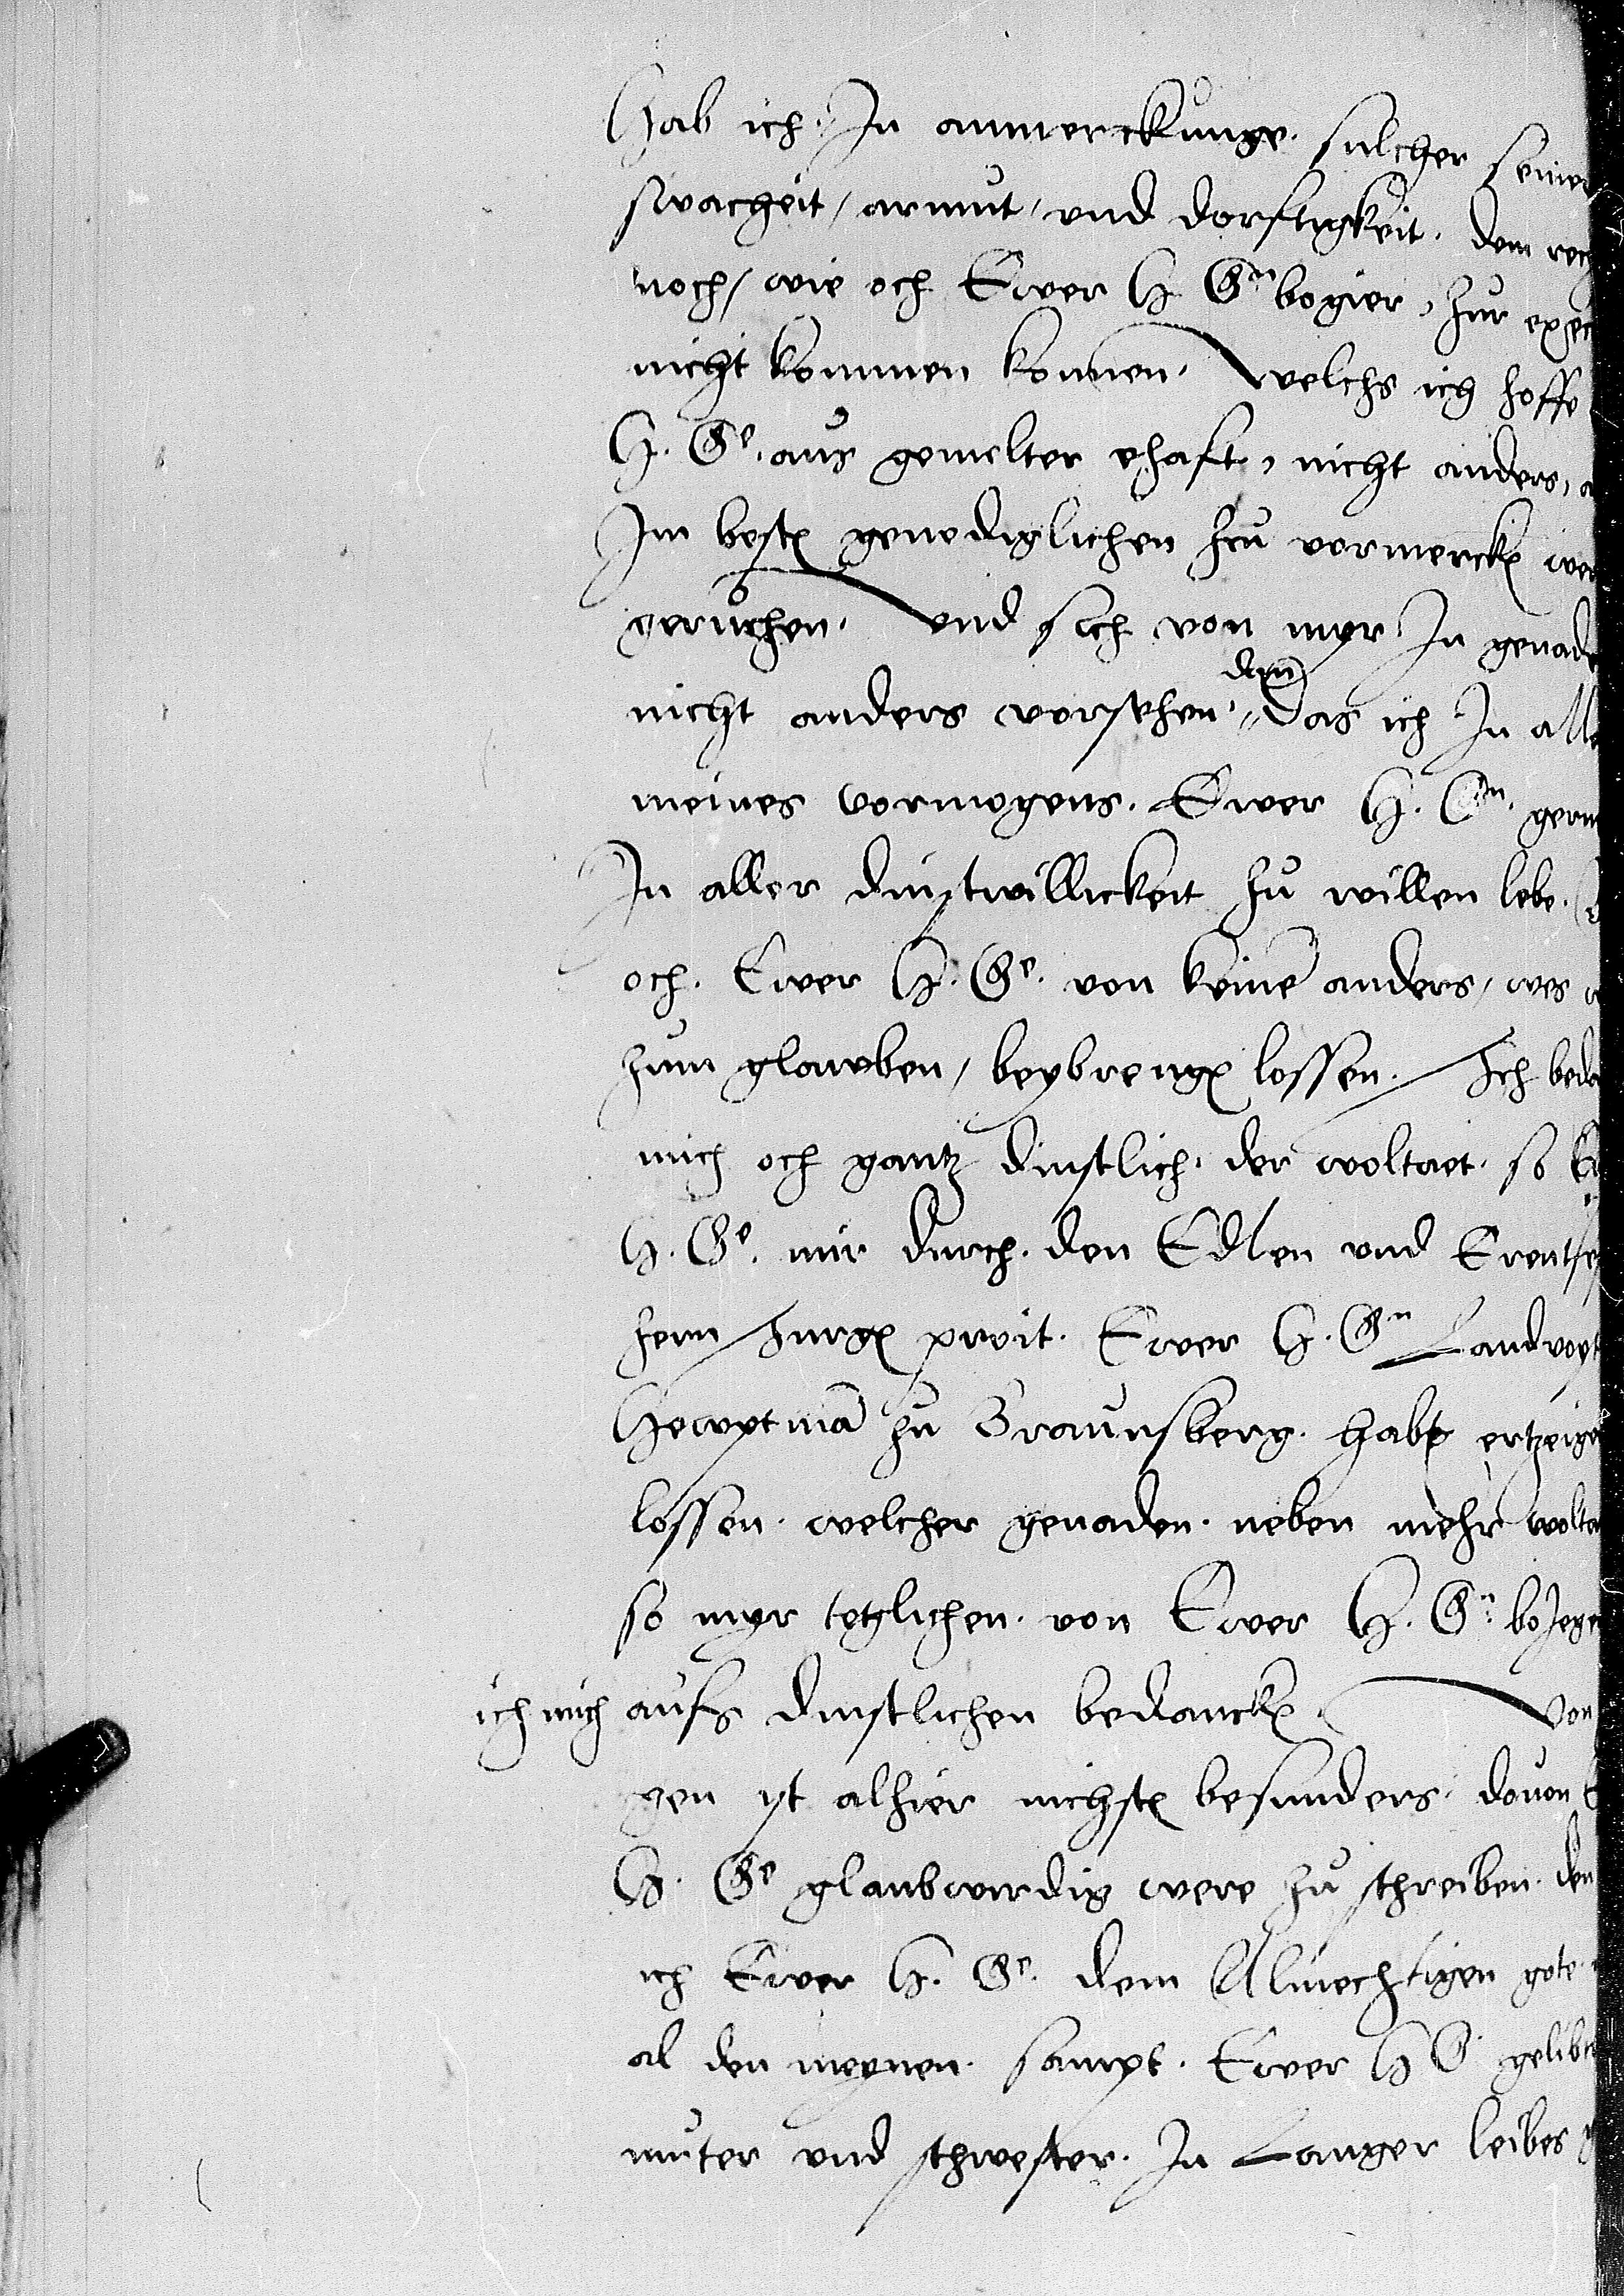 Hab ich. In anmerckunge. sulcher seiner
swacheit / armut / und dorftigkeit. dem rech
noch / wie och Ewer H Gn begier, zur exec
nicht kommen konnen. Welchs ich hoffe
H. Ge. aus gemelter ehaft, nicht anders, a
Im besten genediglichen zcu vormercken wer
geruchen. Und sich von myr In genade
nicht anders vorsehen, den das ich In alle
meines vormogens. Ewer H. Gn. gern
In aller dinstwillickeit zu willen lebe.
och. Ewer H. Ge. von keine anders, wes
zum glawben / beybrengen lossen. Ich beda
mich och gantz dinstlich. der woltaet. so
H. Ge. mir durch. den Edlen und Erentfe
hern Jurgen proit. Ewer H. Gn Landvoyt
Hewptma zu Braunsberg. haben ertzeige
lossen. welcher genaden. neben mehr wolta
so myr teglichen. von Ewer H. Gn bojege
ich mich aufs dinstlichen bedancken. Von
gen yt alhier nichsten besunders. douon E
H. Ge glaubwirdig were zu schreiben. den
ich Ewer H. Ge. dem Almechtigen gote
al den meynen. sampt. Ewer H G gelibte
muter und schwester. In Langer leibes g